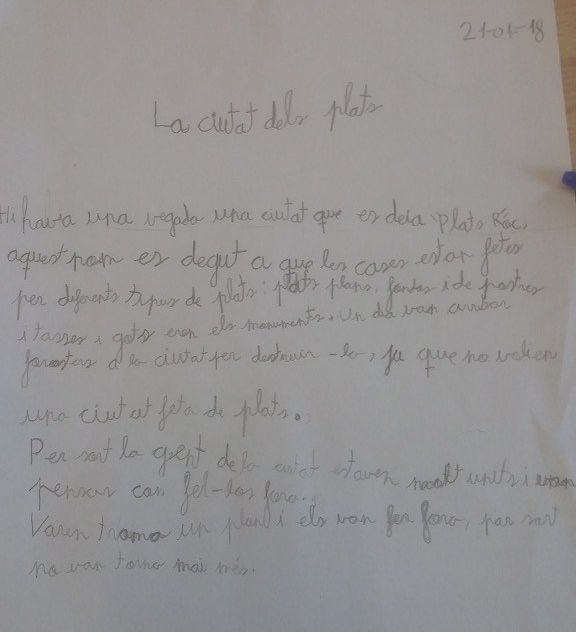 21-01-18
La ciutat dels plats
Hi havia una vegada una ciutat que es deia Plats Roc,
aquest nom es degut a que les cases estan fetes
per diferents tipus de plats: plats plans, fondos i de postres
i tasses i gots eren els monuments. Un dia van arribar
forasters a la ciutat per destruir-la, ja que no volien
una ciutat feta de plats.
Per sort la gent de la ciutat estaven molt units i varen
pensar com fel-los fora.
Varen trama un plan i els van fer fora, per sort
no van torna mai més.